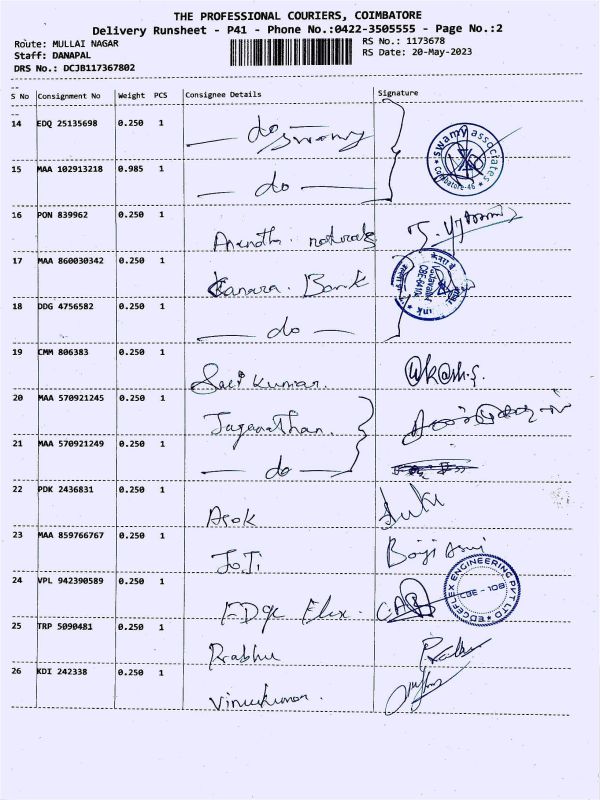 THE PROFESSIONAL COURIERS, COIMBATORE
Delivery Runsheet - P41 - Phone No.:0422-3505555 - Page No.:2
Route: MULLAI NAGAR
Staff: DANAPAL
DRS No.: DCJB117367802
RS No.: 1173678
RS Date: 20-May-2023
S No Consignment No Weight PCS Consignee Details Signature
14 EDQ 25135698 0.250 1 do swamy
swamy associates Coimbatore-46
15 MAA 102913218 0.985 1 do
16 PON 839962 0.250 1
17 MAA 860030342 0.250 1 Canara Bank
18 DDG 4756582 0.250 1 do
19 CMM 806383 0.250 1 Sasi Kumar.
20 MAA 570921245 0.250 1 Jaganathan.
21 MAA 570921249 0.250 1 do
22 PDK 2436831 0.250 1 Asok
23 MAA 859766767 0.250 1 Joti
24 VPL 942390589 0.250 1 EDge Flex.
EDGEFLEX ENGINEERING PVT LTD CBE - 108
25 TRP 5090481 0.250 1 Prabhu
26 KDI 242338 0.250 1